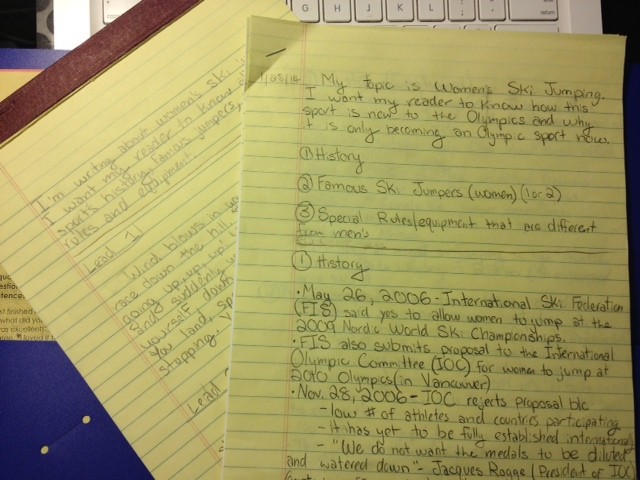 1/28/14
My topic is Women's Ski Jumping.
I want my reader to know how this
sport is new to the Olympics and why
it is only becoming an Olympic sport now.
① History
② Famous Ski Jumpers (women) (1 or 2)
③ Special Rules/equipment that are different
from men's
① History
• May 26, 2006 - International Ski Federation
(FIS) said yes to allow women to jump at the
2009 Nordic World Ski Championships.
• FIS also submits proposal to the International
Olympic Committee (IOC) for women to jump at
2010 Olympics (in Vancouver)
• Nov. 28, 2006 - IOC rejects proposal b/c
- low # of athletes and countries participating
- it has yet to be fully established internationally
- "We do not want the medals to be diluted
and watered down" - Jacques Rogge (President of IOC)
I'm writing about women's ski
I want my reader to know
sport's history, famous jumpers,
rules and equipment.
Lead 1
Wind blows in yo
race down the hill
going up, up, up!
And suddenly
yourself down
You land, sp
stopping.
Lead
G H J K L
return